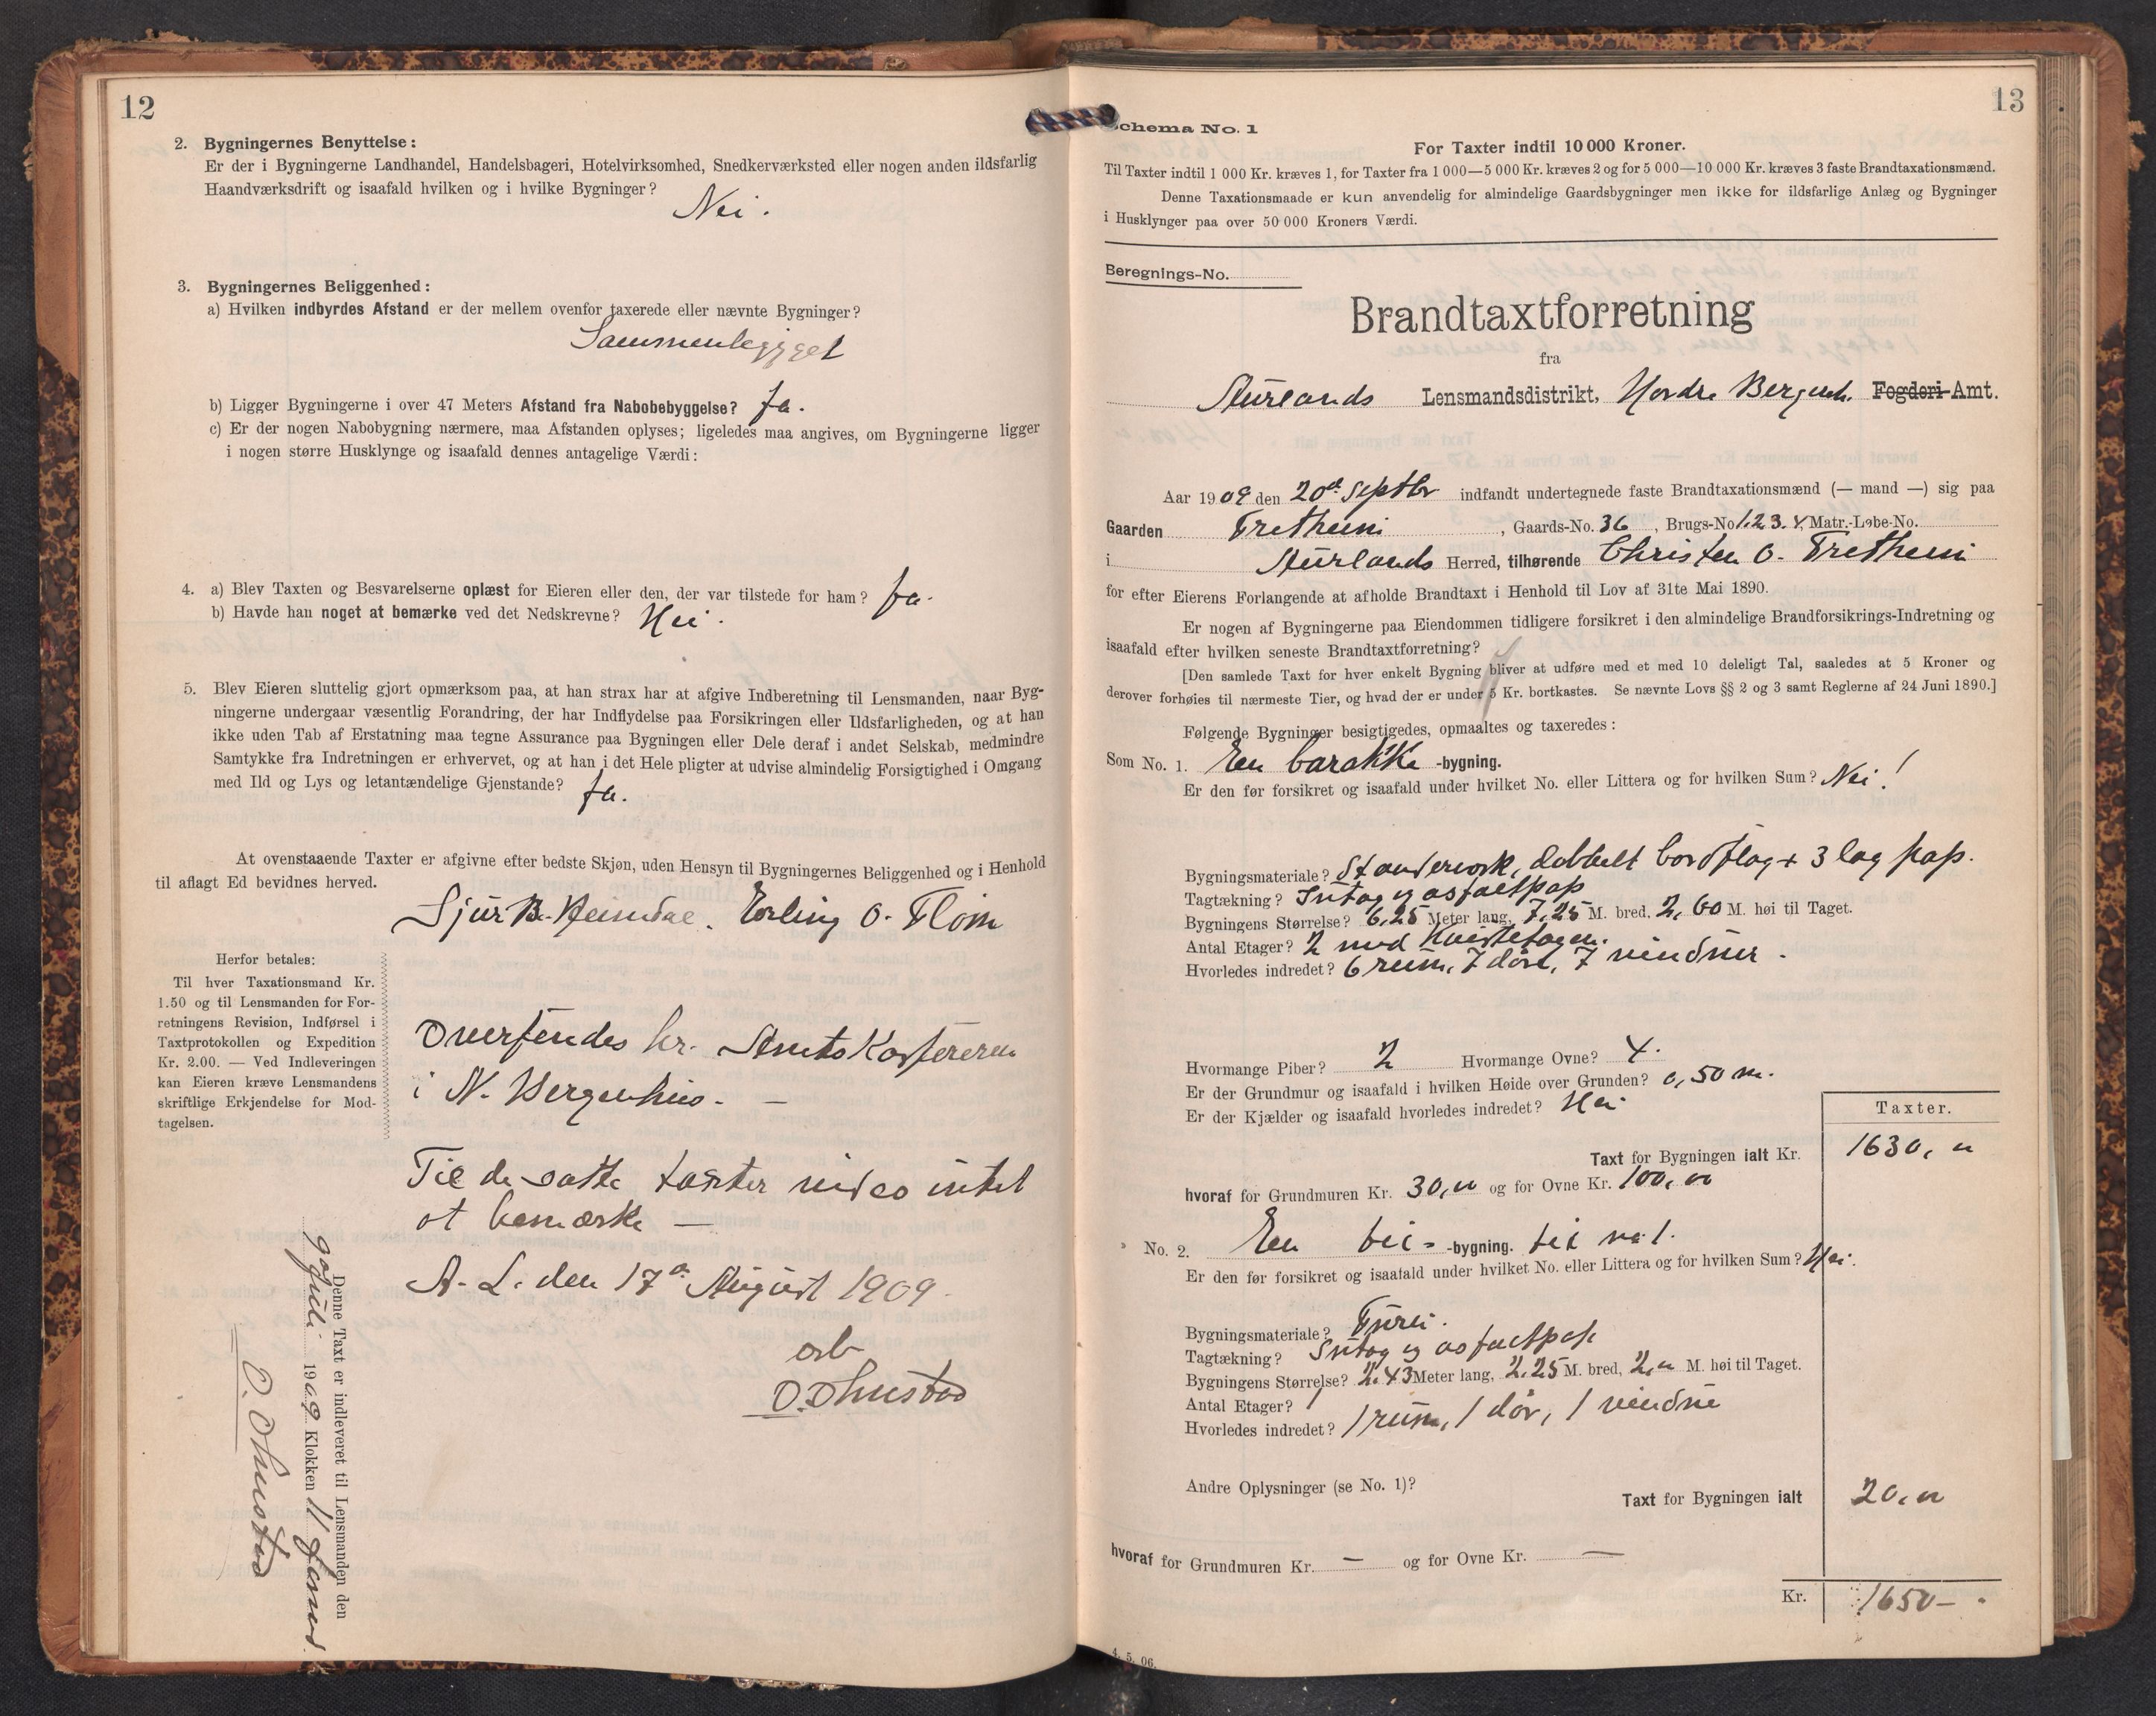 12
2. Bygningernes Benyttelse:
Er der i Bygningerne Landhandel, Handelsbageri, Hotelvirksomhed, Snedkerværksted eller nogen anden ildsfarlig
Haandværksdrift og isaafald hvilken og i hvilke Bygninger?
Nei.
3. Bygningernes Beliggenhed:
a) Hvilken indbyrdes Afstand er der mellem ovenfor taxerede eller nævnte Bygninger?
Sammenbygget
b) Ligger Bygningerne i over 47 Meters Afstand fra Nabobebyggelse? Ja.
c) Er der nogen Nabobygning nærmere, maa Afstanden oplyses; ligeledes maa angives, om Bygningerne ligger
i nogen større Husklynge og isaafald dennes antagelige Værdi:
4. a) Blev Taxten og Besvarelserne oplæst for Eieren eller den, der var tilstede for ham? Ja.
b) Havde han noget at bemærke ved det Nedskrevne? Nei.
5. Blev Eieren sluttelig gjort opmærksom paa, at han strax har at afgive Indberetning til Lensmanden, naar Byg-
ningerne undergaar væsentlig Forandring, der har Indflydelse paa Forsikringen eller Ildsfarligheden, og at han
ikke uden Tab af Erstatning maa tegne Assurance paa Bygningen eller Dele deraf i andet Selskab, medmindre
Samtykke fra Indretningen er erhvervet, og at han i det Hele pligter at udvise almindelig Forsigtighed i Omgang
med Ild og Lys og letantændelige Gjenstande? Ja.
At ovenstaaende Taxter er afgivne efter bedste Skjøn, uden Hensyn til Bygningernes Beliggenhed og i Henhold
til aflagt Ed bevidnes herved.
Sjur B. Heimdal. Erling O. Flom
Herfor betales:
Til hver Taxationsmand Kr.
1.50 og til Lensmanden for For-
retningens Revision, Indførsel i
Taxtprotokollen og Expedition
Kr. 2.00. — Ved Indleveringen
kan Eieren kræve Lensmandens
skriftlige Erkjendelse for Mod-
tagelsen.
Oversendes hr. Amtskassereren
i N. Bergenhus. —
Til de satte taxter vides intet
at bemærke —
A. L. den 17de August 1909.
arb
O. Ohnstad
Denne Taxt er indleveret til Lensmanden den
9 Juli 1909 Klokken 11 formd.
O. Ohnstad
13
Schema No. 1
For Taxter indtil 10 000 Kroner.
Til Taxter indtil 1 000 Kr. kræves 1, for Taxter fra 1 000—5 000 Kr. kræves 2 og for 5 000—10 000 Kr. kræves 3 faste Brandtaxationsmænd.
Denne Taxationsmaade er kun anvendelig for almindelige Gaardsbygninger men ikke for ildsfarlige Anlæg og Bygninger
i Husklynger paa over 50 000 Kroners Værdi.
Beregnings-No.
Brandtaxtforretning
fra
Aurlands Lensmandsdistrikt, Nordre Bergenh. Fogderi Amt.
Aar 1909 den 20de Septbr indfandt undertegnede faste Brandtaxationsmænd (— mand —) sig paa
Gaarden Fretheim, Gaards-No. 36, Brugs-No 1.2.3.4, Matr.-Løbe-No.
i Aurlands Herred, tilhørende Christen O. Fretheim
for efter Eierens Forlangende at afholde Brandtaxt i Henhold til Lov af 31te Mai 1890.
Er nogen af Bygningerne paa Eiendommen tidligere forsikret i den almindelige Brandforsikrings-Indretning og
isaafald efter hvilken seneste Brandtaxtforretning?
[Den samlede Taxt for hver enkelt Bygning bliver at udføre med et med 10 deleligt Tal, saaledes at 5 Kroner og
derover forhøies til nærmeste Tier, og hvad der er under 5 Kr. bortkastes. Se nævnte Lovs §§ 2 og 3 samt Reglerne af 24 Juni 1890.]
Følgende Bygninger besigtigedes, opmaaltes og taxeredes:
Som No. 1. En barakke -bygning.
Er den før forsikret og isaafald under hvilket No. eller Littera og for hvilken Sum? Nei!
Bygningsmateriale? Standerverk, dobbelt bordflag + 3 lag pap.
Tagtækning? Sutag og asfaltpap
Bygningens Størrelse? 6,25 Meter lang, 7,25 M. bred, 2,60 M. høi til Taget.
Antal Etager? 2 med Kvistetagen.
Hvorledes indredet? 6 rum, 7 døre, 7 vinduer.
Hvormange Piber? 2 Hvormange Ovne? 4.
Er der Grundmur og isaafald i hvilken Høide over Grunden? 0,50 m.
Er der Kjælder og isaafald hvorledes indredet? Nei
Taxter.
Taxt for Bygningen ialt Kr. 1630,00
hvoraf for Grundmuren Kr. 30,00 og for Ovne Kr. 100,00
No. 2. En bi- -bygning. til no 1.
Er den før forsikret og isaafald under hvilket No. eller Littera og for hvilken Sum? Nei.
Bygningsmateriale? Furu.
Tagtækning? Sutag og asfaltpap
Bygningens Størrelse? 2.43 Meter lang, 2.25 M. bred, 2,00 M. høi til Taget.
Antal Etager? 1
Hvorledes indredet? 1 rum, 1 dør, 1 vindue
Andre Oplysninger (se No. 1)?
Taxt for Bygningen ialt 20,00
hvoraf for Grundmuren Kr. — og for Ovne Kr. —
Kr. 1650-
4. 5. 06.